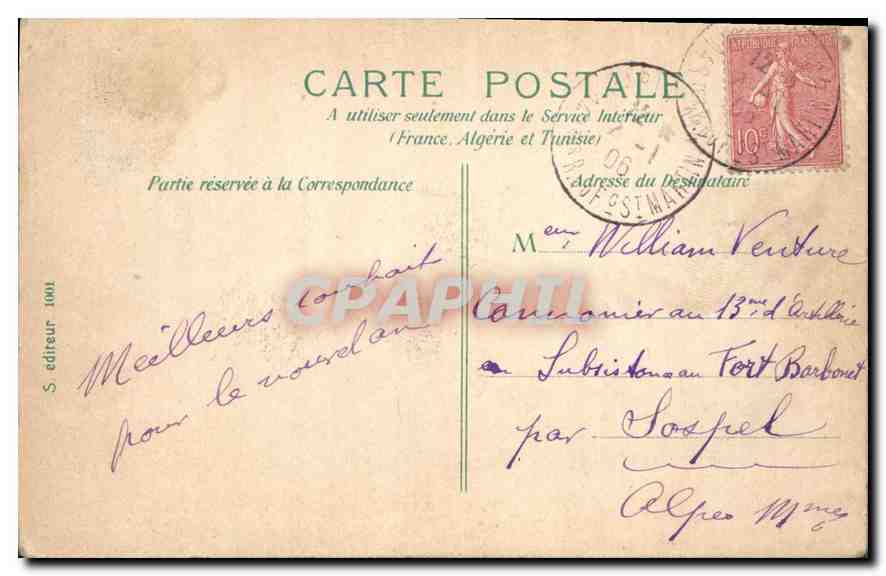 CARTE POSTALE
A utiliser seulement dans le Service Intérieur
(France, Algérie et Tunisie)
Partie réservée à la Correspondance
Adresse du Destinataire
RÉPUBLIQUE FRANÇAISE
10c
06
R. DU Fg St MARTIN
Meilleurs souhait
pour le nouvel an
Meur William Venture
Cannonier au 13me d'Artillerie
en Subsistance au Fort Barbonet
par Sospel
Alpes Mmes
S. éditeur 1001
CPAPHIL